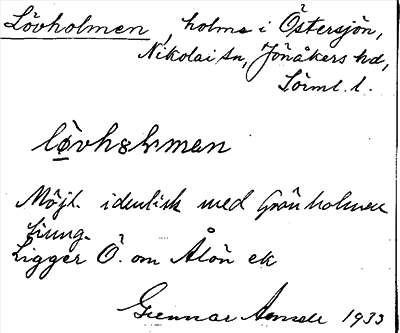 Lövholmen, holme i Östersjön,
Nikolai sn, Jönåkers hd,
Sörml. l.
lövhəlmen
Möjl. identisk med Grönholmen
Ligger Ö. om Ålön ek
Gunnar 1933